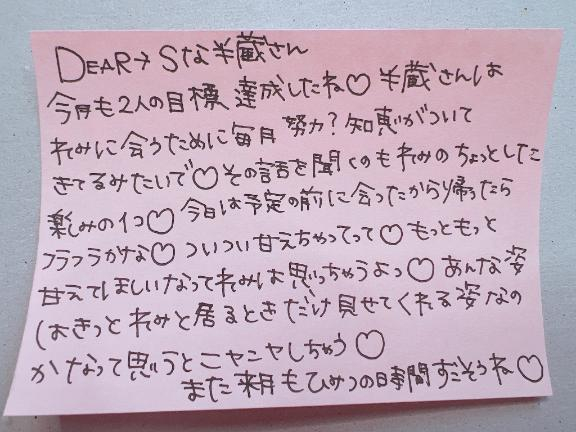 DEAR→Sな半蔵さん
今月も2人の目標、達成したね♡ 半蔵さんは
れみに会うために毎月 努力?知恵がついて
きてるみたいで♡その話を聞くのもれみのちょっとした
楽しみの1コ♡ 今日は予定の前に会ったから帰ったら
フラフラかな♡ ついつい甘えちゃってって♡もっともっと
甘えてほしいなってれみは思っちゃうよっ♡あんな姿
はきっとれみと居るときだけ見せてくれる姿なの
かなって思うとニヤニヤしちゃう♡
また来月もひみつの時間すごそうね♡